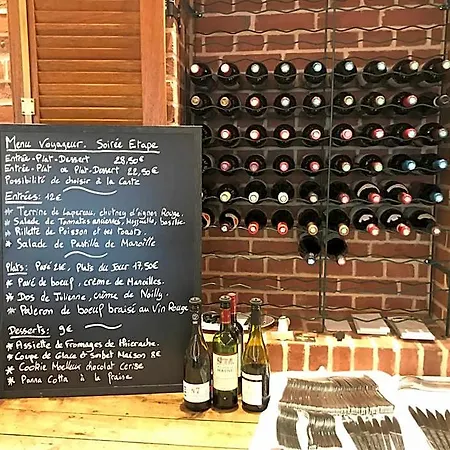 Menu Voyageur. Soirée Etape
Entrée-Plat-Dessert 28,50€
Entrée-Plat ou Plat-Dessert 22,50€
Possibilité de choisir à la Carte
Entrées: 12€
* Terrine de Lapereau, chutney d'oignon Rouge
* Salade de Tomates anciennes, Mozzarella, basilic
* Rillette de Poisson et ses toasts.
* Salade de Pastilla de Maroille
Plats: Pavé 21€, Plats du Jour 17,50€
* Pavé de boeuf, crème de Maroilles.
* Dos de Julienne, crème de Noilly.
* Paleron de boeuf braisé au Vin Rouge
Desserts: 9€
* Assiette de fromages de Thiérache.
* Coupe de Glace & Sorbet Maison 8€
Cookie Moelleux chocolat cerise
* Panna Cotta à la fraise